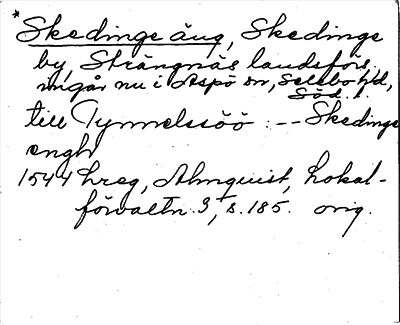 *Skedinge äng, Skedinge
by, Strängnäs landsförs.,
ingår nu i Aspö sn, Selebo hd,
Söd.
till Tynnelssöö :-- Skedinge
enghr
1544 hreg, Almquist, Lokal-
förvaltn. 3, s. 185. orig.